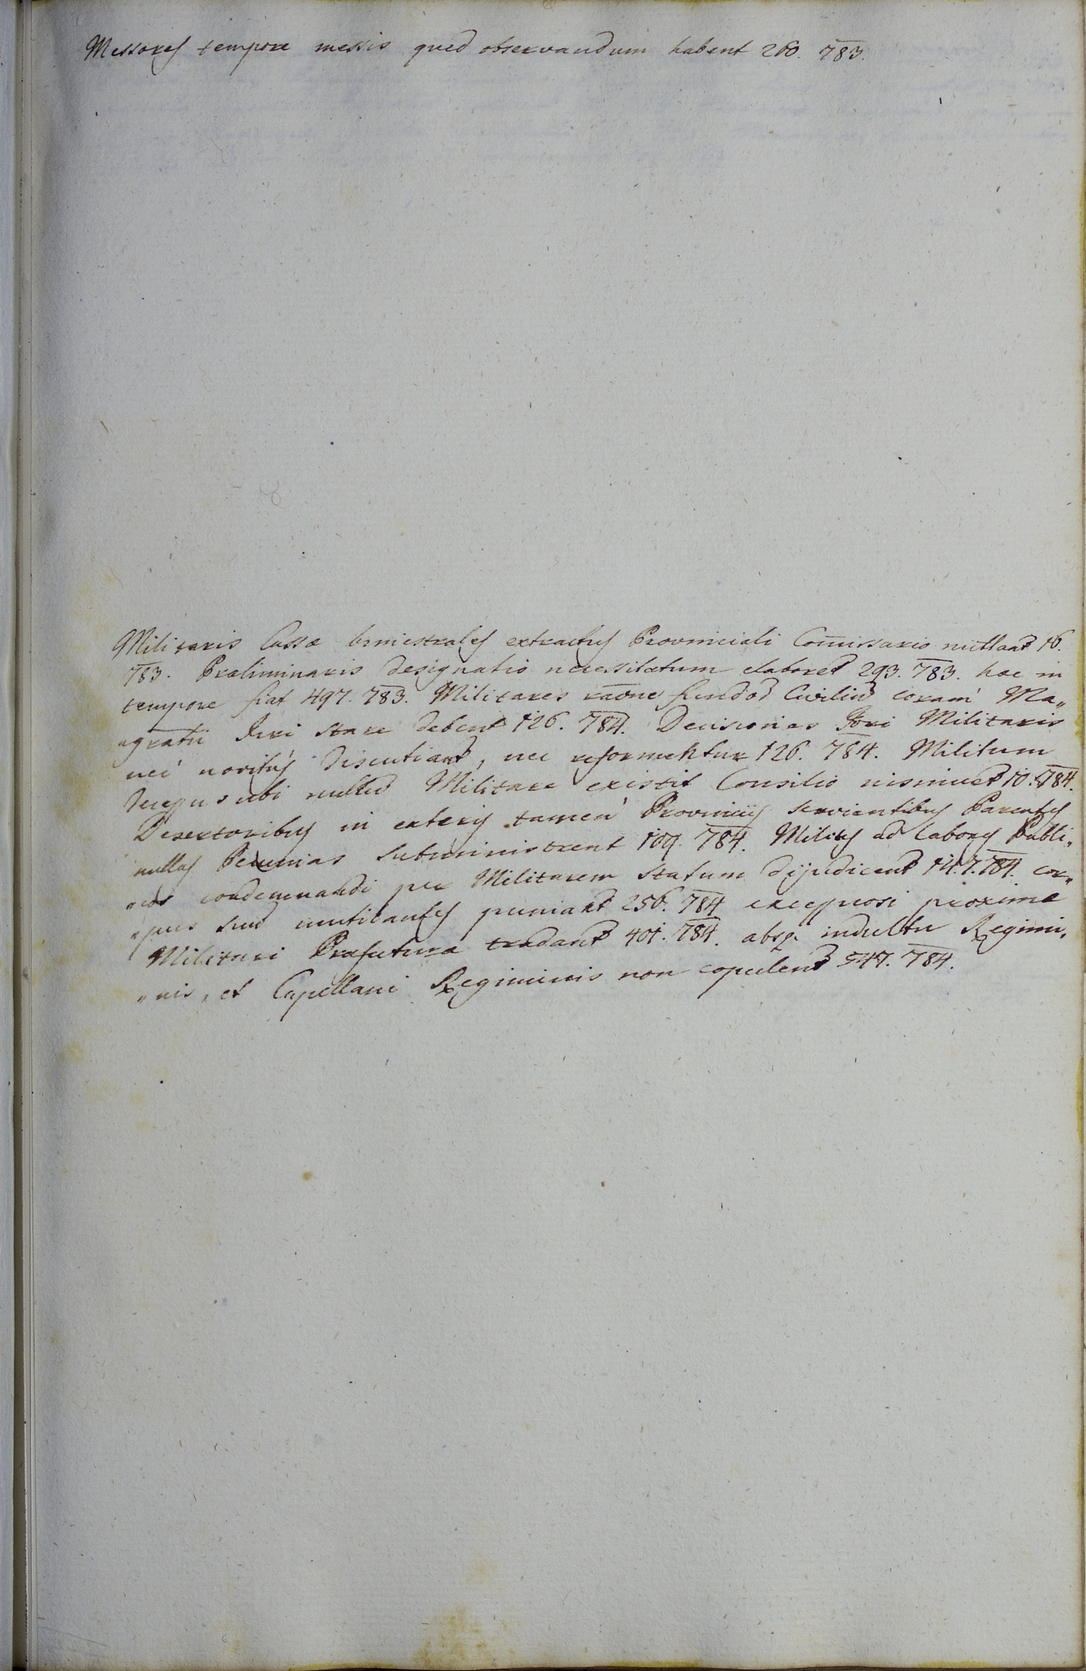 Messores tempore messis quod observandum habent 260. 783.
Militaris Cassæ bimestrales extractus Provinciali Com̄issario mittant 16.
783. Præliminaris designatio necessitatum elaboret 293. 783. hac in
tempore fiat 497. 783. Militares raōne fundo Civiliū coram Ma„
„gratu Juri stare debent 126. 784. Decisiones Fori Militaris
nec noviter discutiant, nec reformentur 126. 784. Militum
ubi nullū Militare existit Consilio 10. 784.
Desertoribus in exteris tamen Provinciis servientibus Parentes
nullas Pecunias subministrent 109. 784. Milites ad labores Publi„
„cos condemnandi per Militarem statum dijudicent 147. 784. cor„
„pus suū mutilantes puniant 256. 784 proxime
Militari Præfectura tradant 401. 784. absq. indultu Regimi„
„nis, et Capellani Regiminis non copulent 547. 784.